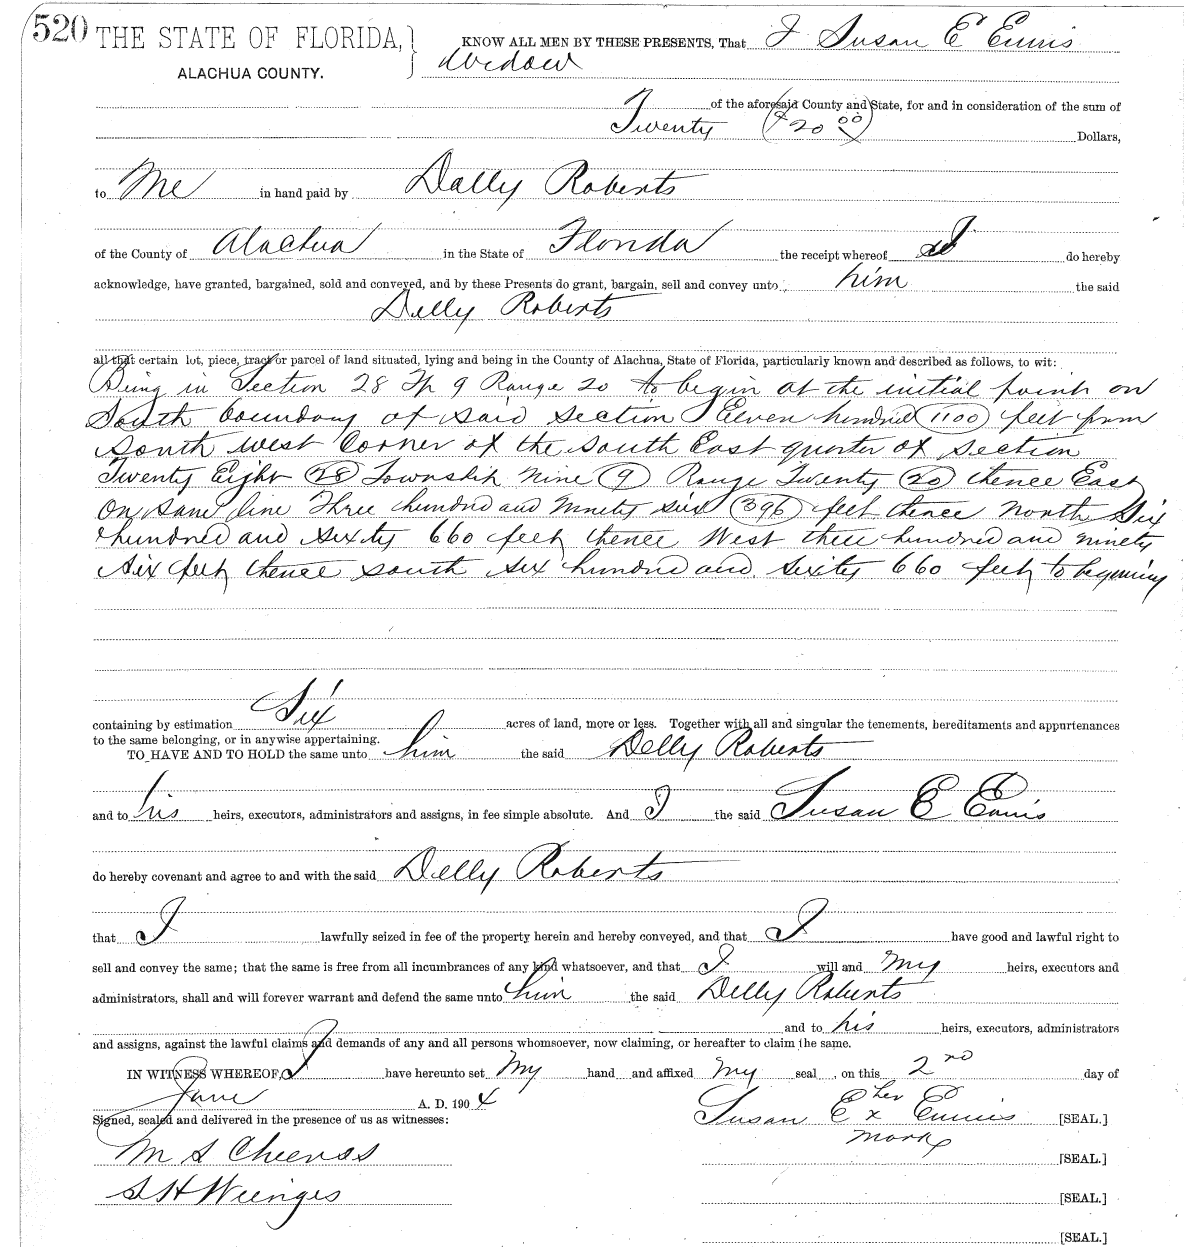 520 THE STATE OF FLORIDA, KNOW ALL MEN BY THESE PRESENTS, That I Susan E Ennis
ALACHUA COUNTY. Widow
of the aforesaid County and State, for and in consideration of the sum of
Twenty ($20 00) Dollars,
to Me in hand paid by Dally Roberts
of the County of Alachua in the State of Florida the receipt whereof I do hereby
acknowledge, have granted, bargained, sold and conveyed, and by these Presents do grant, bargain, sell and convey unto him the said
Delly Roberts
all that certain lot, piece, tract or parcel of land situated, lying and being in the County of Alachua, State of Florida, particularly known and described as follows, to wit:
Being in Section 28 Tp 9 Range 20 to begin at the initial point on
South boundary of said section Eleven hundred (1100) feet from
south west Corner of the South East quarter of section
Twenty Eight (28) Township nine (9) Range Twenty (20) thence East
On same line Three hundred and Ninety six (396) feet thence North Six
hundred and sixty 660 feet thence West three hundred and ninety
six feet thence south six hundred and sixty 660 feet to begining
containing by estimation Six acres of land, more or less. Together with all and singular the tenements, hereditaments and appurtenances
to the same belonging, or in anywise appertaining.
TO HAVE AND TO HOLD the same unto him the said Delly Roberts
and to his heirs, executors, administrators and assigns, in fee simple absolute. And I the said Susan E Ennis
do hereby covenant and agree to and with the said Delly Roberts
that I lawfully seized in fee of the property herein and hereby conveyed, and that I have good and lawful right to
sell and convey the same; that the same is free from all incumbrances of any kind whatsoever, and that I will and my heirs, executors and
administrators, shall and will forever warrant and defend the same unto him the said Delly Roberts
and to his heirs, executors, administrators
and assigns, against the lawful claims and demands of any and all persons whomsoever, now claiming, or hereafter to claim the same.
IN WITNESS WHEREOF, I have hereunto set My hand and affixed my seal , on this 2nd day of
June A. D. 1904
Susan E her x mark Ennis [SEAL.]
Signed, sealed and delivered in the presence of us as witnesses:
M S Cheves [SEAL.]
S H Wienges [SEAL.]
[SEAL.]